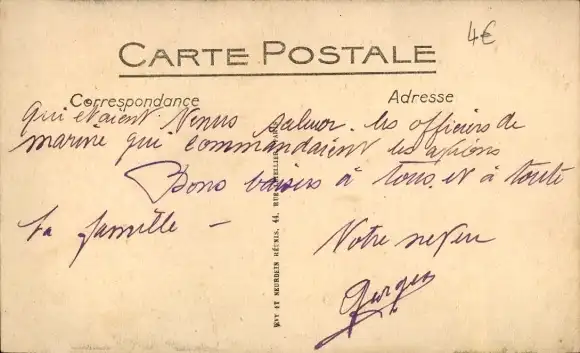 4€
CARTE POSTALE
Correspondance
Adresse
qui étaient venus saluer les officiers de
marine qui commandaient les avions
Bons baisers à tous et à toute
la famille —
Votre neveu
Georges
LEVY ET NEURDEIN RÉUNIS, 44, RUE LETELLIER, PARIS